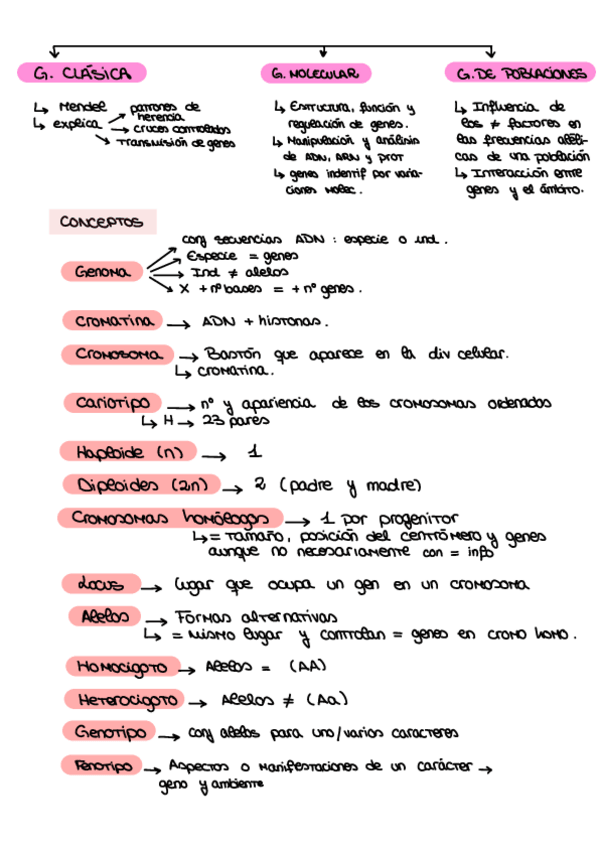 G. CLÁSICA
↳ Mendel
↳ explica → patrones de herencia
→ cruces controlados
→ Transmisión de genes
G. MOLECULAR
↳ Estructura, función y
regulación de genes.
↳ Manipulación y análisis
de ADN, ARN y prot
↳ genes indentif por varia-
ciones molec.
G. DE POBLACIONES
↳ Influencia de
los ≠ factores en
las frecuencias aléli-
cas de una población
↳ Interacción entre
genes y el ámbito.
CONCEPTOS
Genoma
conj secuencias ADN : especie o ind.
Especie = genes
Ind ≠ alelos
X + nº bases = + nº genes.
Cromatina → ADN + histonas.
Cromosoma → Bastón que aparece en la div celular.
↳ cromatina.
Cariotipo → nº y apariencia de los cromosomas ordenados
↳ H → 23 pares
Haploide (n) → 1
Diploides (2n) → 2 (padre y madre)
Cromosomas homólogos → 1 por progenitor
↳ = tamaño, posición del centrómero y genes
aunque no necesariamente con = info
Locus → lugar que ocupa un gen en un cromosoma
Alelos → Formas alternativas
↳ = mismo lugar y controlan = genes en cromo homo.
Homocigoto → Alelos = (AA)
Heterocigoto → Alelos ≠ (Aa)
Genotipo → conj alelos para uno/varios caracteres
Fenotipo → Aspectos o manifestaciones de un carácter →
geno y ambiente